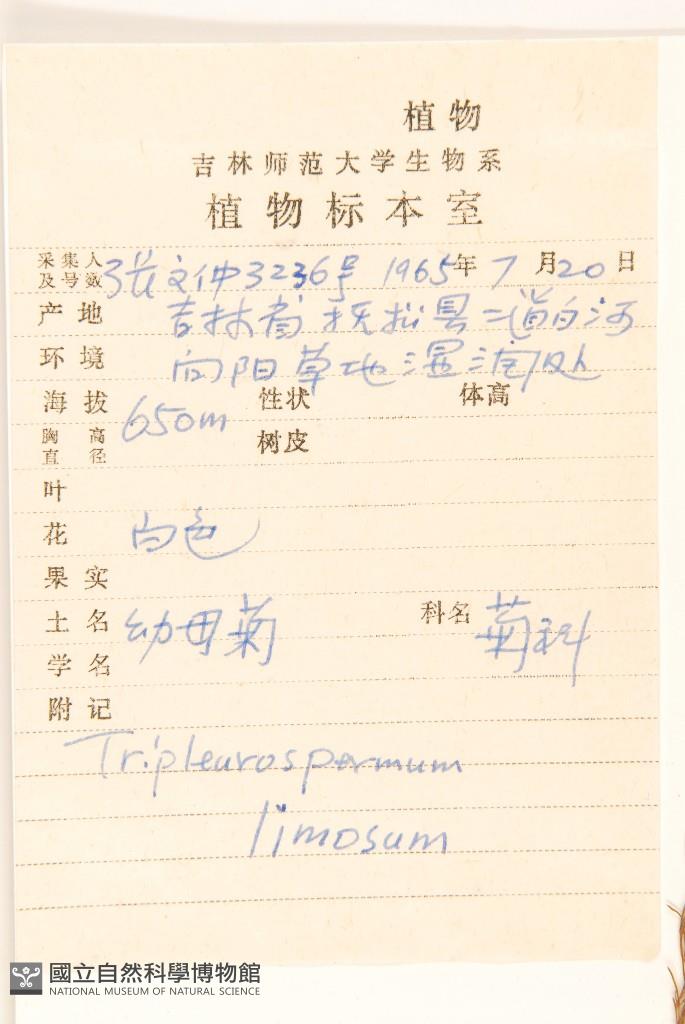 植物
吉林师范大学生物系
植物标本室
采集人及号数 张文仲3236号 1965年7月20日
产地 吉林省抚松县二道白河
环境 向阳草地湿润处
海拔 650m 性状 体高
胸高直径 树皮
叶
花 白色
果实
土名 幼母菊 科名 菊科
学名
附记
Tripleurospermum
limosum
國立自然科學博物館
NATIONAL MUSEUM OF NATURAL SCIENCE